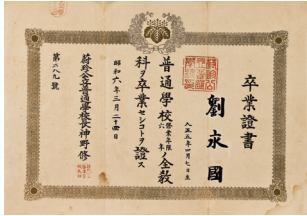 卒業證書
劉永國
大正五年四月七日生
普通學校修業年限
六年ノ全教
科ヲ卒業セシコトヲ證ス
昭和六年三月二十四日
公立普通學校長神野修
第二八九號